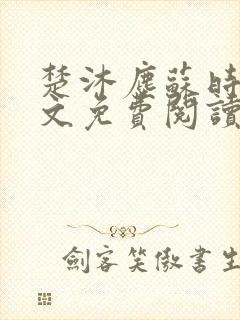 楚沐塵蘇時
文免費閱讀
劍客笑傲書生